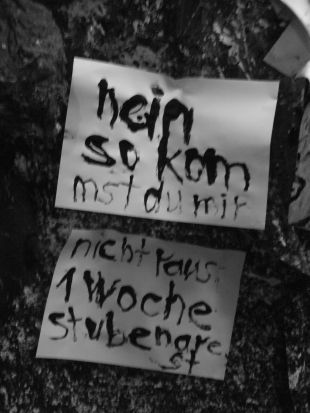 nein
so kom
mst du mir
nicht raus
1 Woche
stubenarre
st